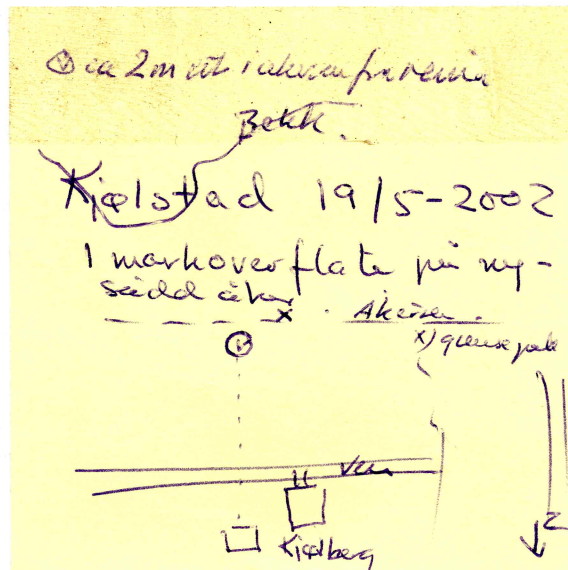 ca 2m ut i åkeren fra renna
Bekk.
Kjølstad 19/5-2002
I markoverflate på ny-
sådd åker
x Åkeren.
x) grense pæl
K
Vei
Kjølberg
N